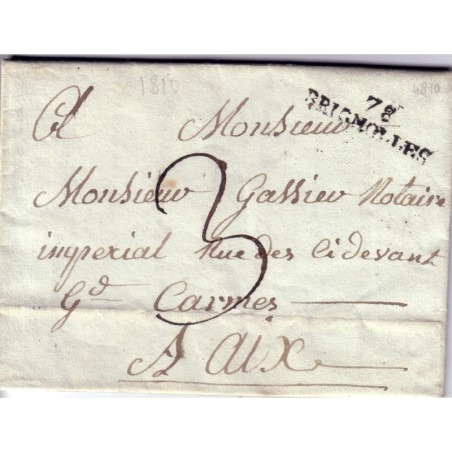 1810
1810
78
BRIGNOLLES
A Monsieur
Monsieur Gassier Notaire
imperial Rue des ci devant
Gd Carmes
3
A Aix